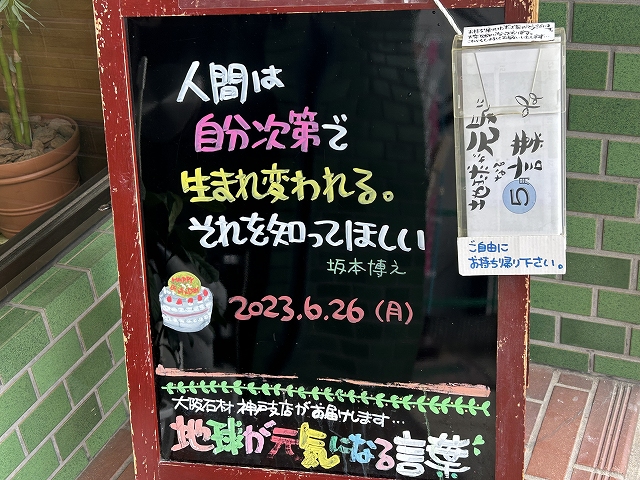 人間は
自分次第で
生まれ変われる。
それを知ってほしい
坂本博之
2023.6.26(月)
大阪石材 神戸支店がお届けします…
地球が元気になる言葉
地球が元気に
なる
言葉
5
ご自由に
お持ち帰り下さい。